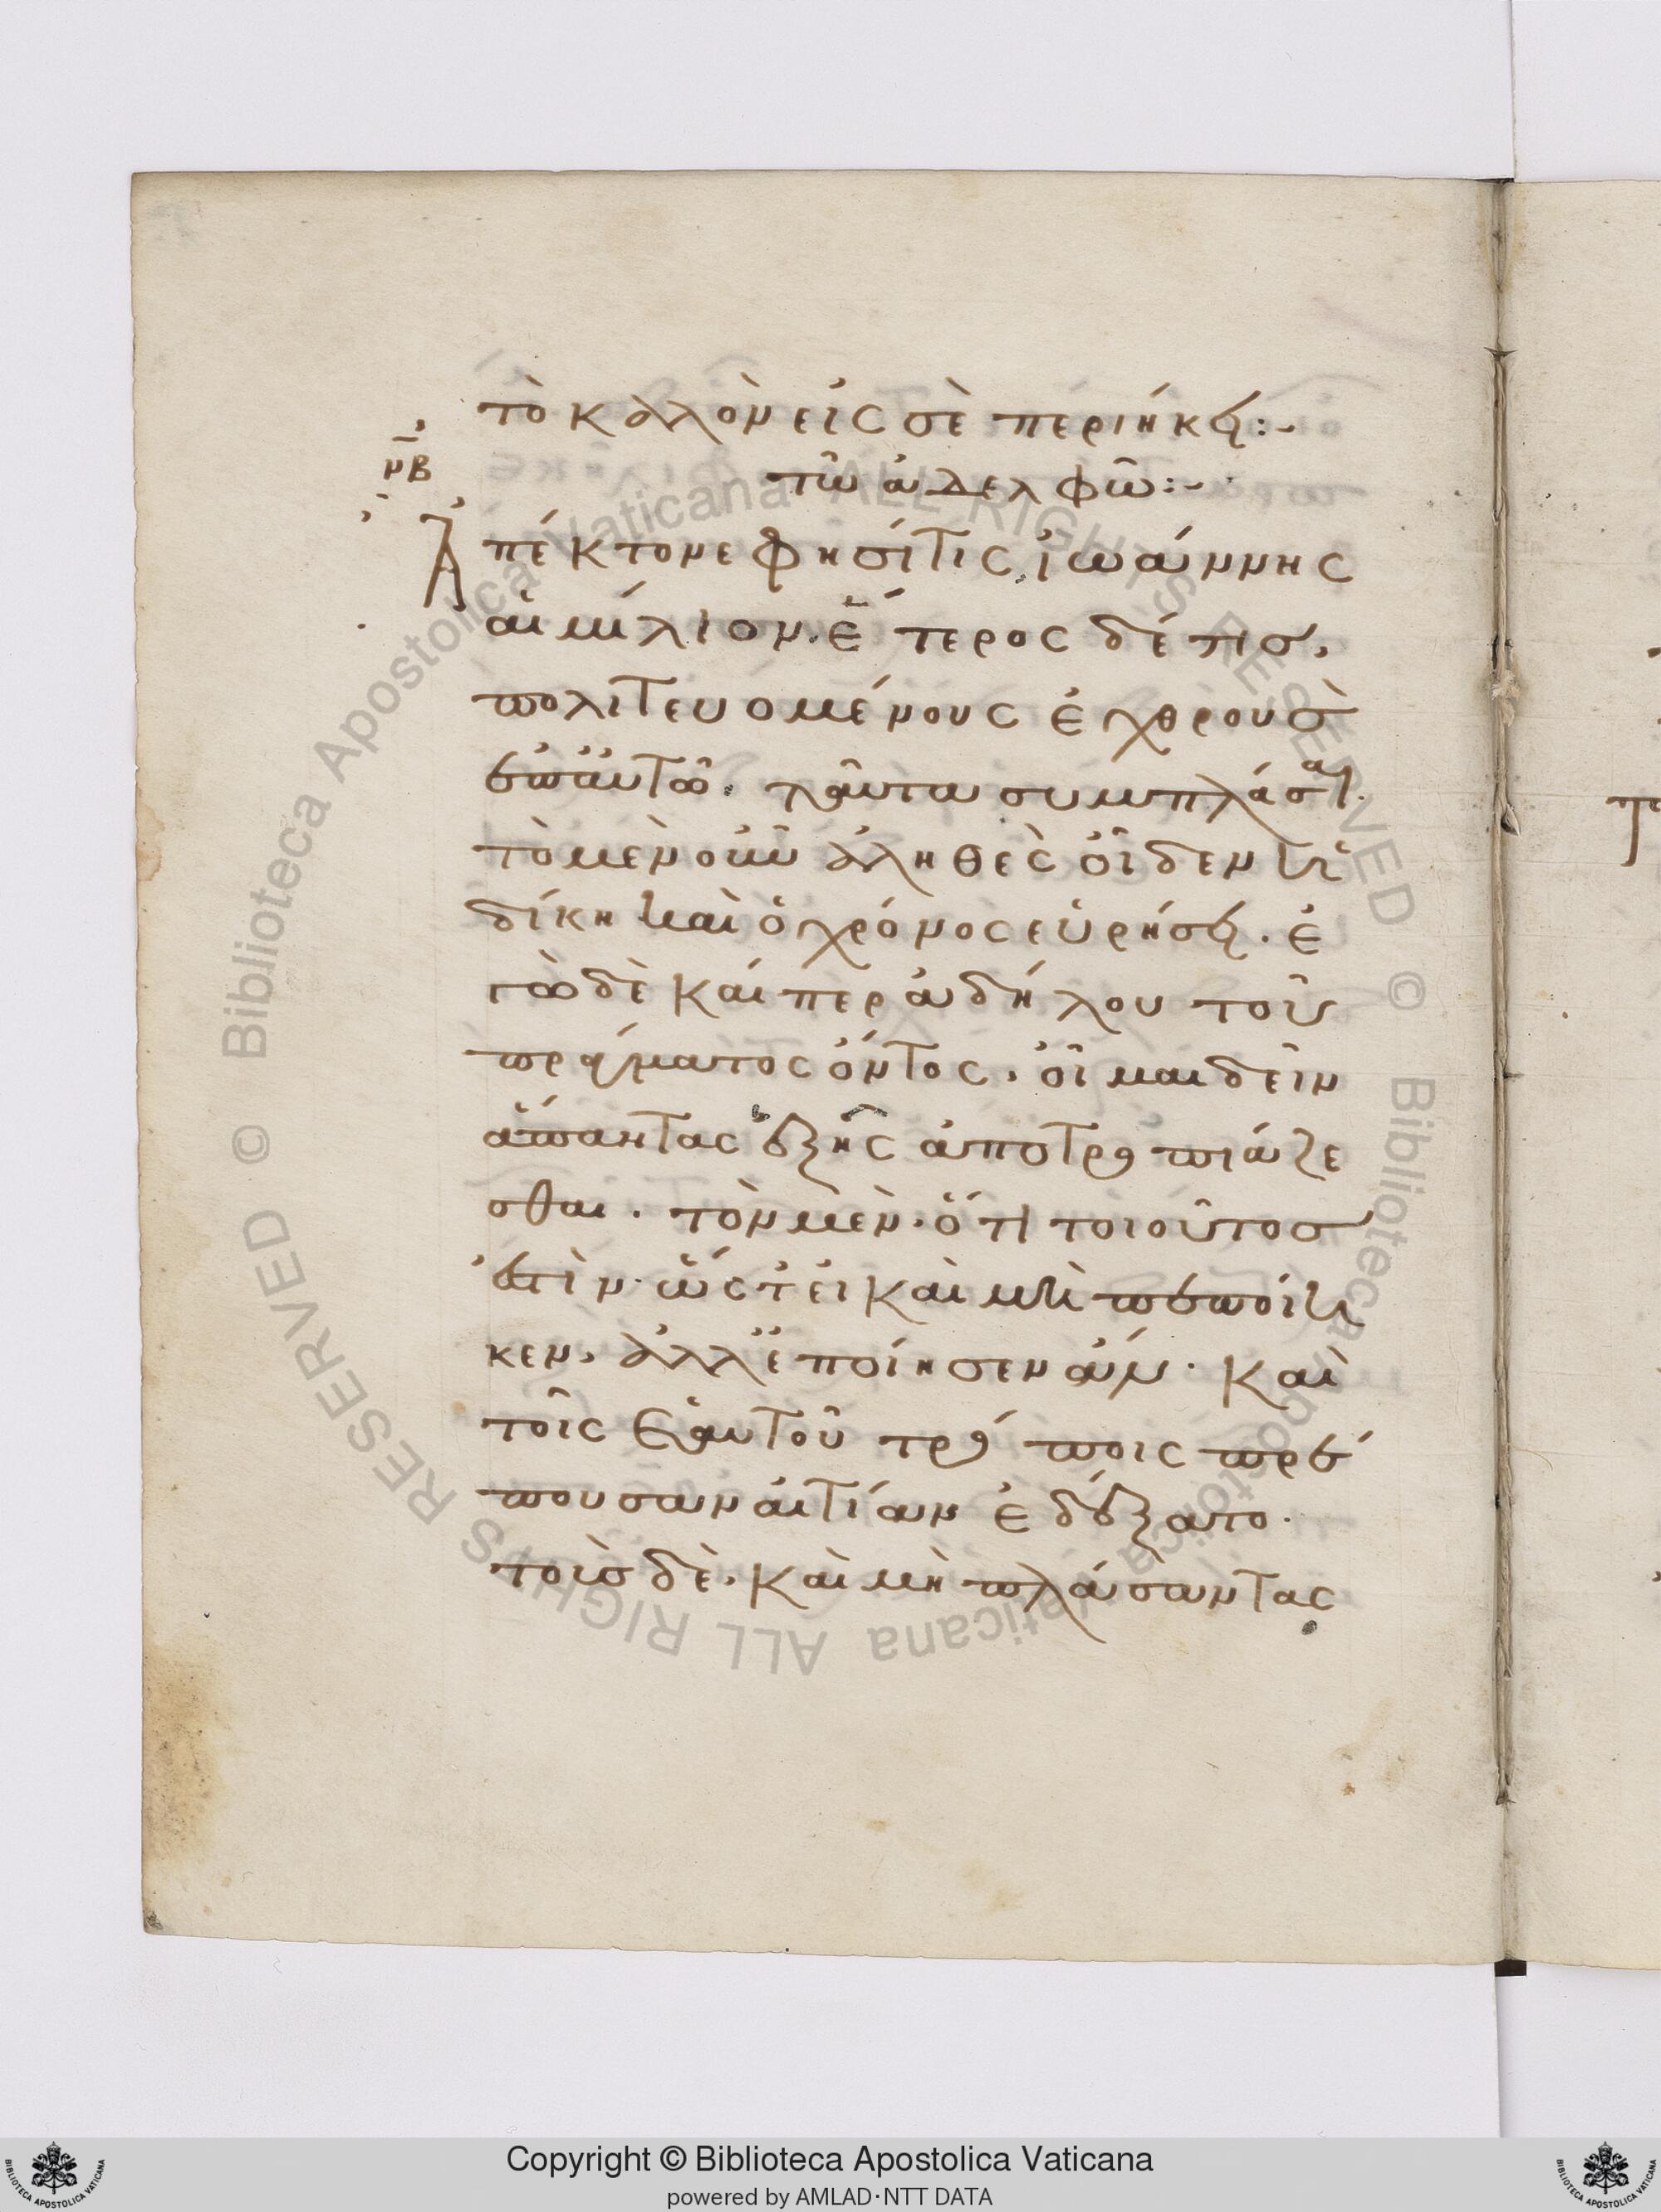 τὸ καλὸν εἰς σὲ περιήκει:~
νβ
τῶ ἀδελφῶ:~
Ἀπέκτονε φησί τις, ἰωάννης
αἰμίλιον. ἕτερος δέ τισ,
πολιτευομένους ἐχθρουσ
ἐπ' αὐτῶ. ταῦτα συμπλάσαι.
τὸ μὲν οὖν ἀληθὲς οἶδεν ἡ
δίκη καὶ ὁ χρόνος εὑρήσει. ἐ
γὼ δὲ καίπερ ἀδήλου τοῦ
πράγματος ὄντος, οἶμαι δεῖν
ἅπαντας ἑξῆς ἀποτροπιάζε
σθαι. τὸν μὲν, ὅτι τοιοῦτοσ
ἐστὶν ὥστ' εἰ καὶ μὴ πεποίη
κεν, ἀλλ' ἐποίησεν ἄν. καὶ
τοῖς ἑαυτοῦ τρόποις πρέ
πουσαν αἰτίαν ἐδέξατο.
τοὺσ δὲ, καὶ μὴ πλάσαντας
Copyright © Biblioteca Apostolica Vaticana
powered by AMLAD·NTT DATA
© Biblioteca Apostolica Vaticana ALL RIGHTS RESERVED
© Biblioteca Apostolica Vaticana ALL RIGHTS RESERVED